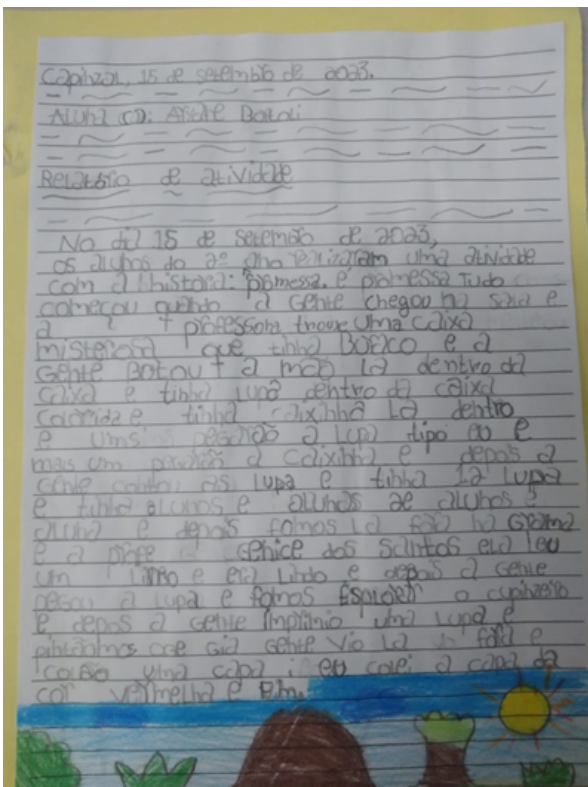 Capinzal, 15 de setembro de 2023.
Aluna (o): André Batoli
Relatório de atividade
No dia 15 de setembro de 2023,
os alunos do 2º ano uma atividade
com a história: promessa é promessa Tudo
começou quando a Gente chegou na sala e
a professora trouxe uma caixa
misteriosa que tinha e a
Gente Botou a mão lá dentro da
caixa e tinha lupa dentro da caixa
colorida e tinha caixinha Lá dentro
e a lupa tipo eu e
mais um a caixinha e depois a
Gente contou as lupa e tinha 12 lupa
e tinha alunos e alunas de alunos e
aluna e depois fomos lá fora na Grama
e a profe dos Santos ela leu
um Livro e era Lindo e depois a Gente
pegou a lupa e fomos o cupinzeiro
e depos a Gente uma Lupa e
Gente vio la fora e
uma capa eu colei a capa da
cor vermelha e Fim.